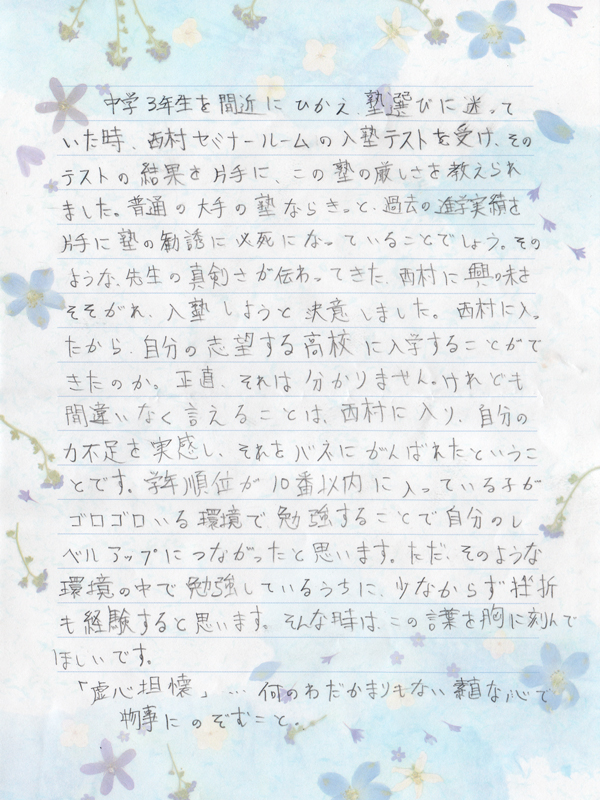 中学3年生を間近にひかえ、塾選びに迷って
いた時、西村セミナールームの入塾テストを受け、その
テストの結果を片手に、この塾の厳しさを教えられ
ました。普通の大手の塾ならきっと、過去の進学実績を
片手に塾の勧誘に必死になっていることでしょう。その
ような、先生の真剣さが伝わってきた、西村に興の味を
そそがれ、入塾しようと決意しました。西村に入っ
たから、自分の志望する高校に入学することがで
きたのか。正直、それは分かりません。けれども
間違いなく言えることは、西村に入り、自分の
力不足を実感し、それをバネにがんばれたというこ
とです。学年順位が10番以内に入っている子が
ゴロゴロいる環境で勉強することで自分のレ
ベルアップにつながったと思います。ただ、そのような
環境の中で勉強しているうちに、少なからず挫折
も経験すると思います。そんな時は、この言葉を胸に刻んで
ほしいです。
「虚心担懐」… 何のわだかまりもない素直な心で
物事にのぞむこと。